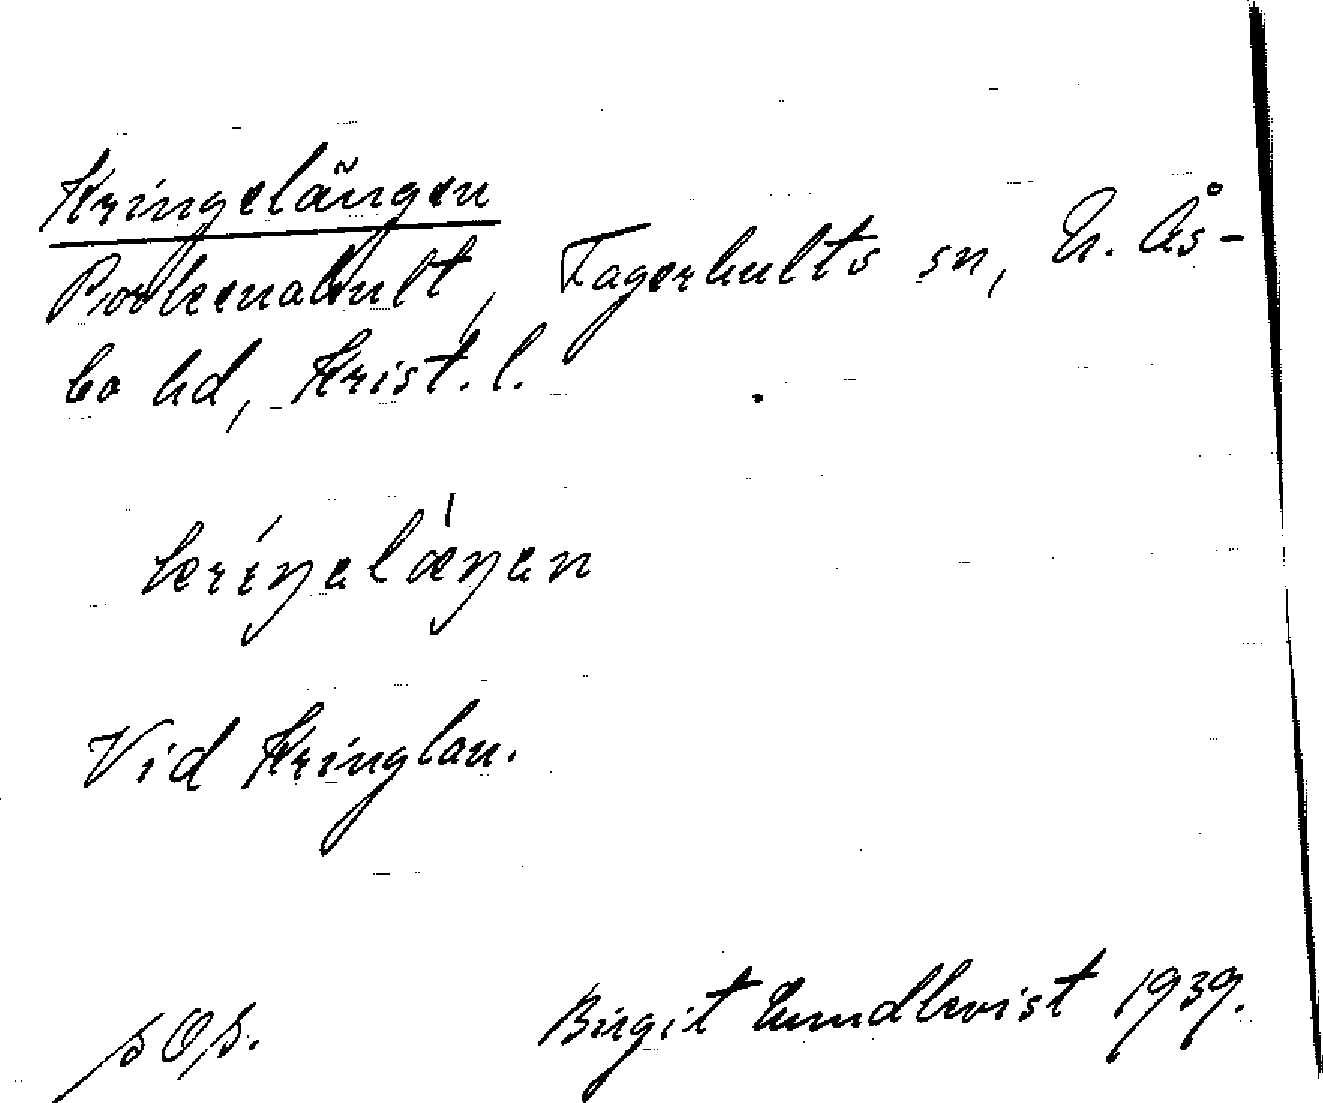 Kringelängen
Porkenahult, Fagerhults sn, N. Ås-
bo hd, Krist. l.
kríŋəlæ̍ŋən
Vid Kringlan.
Birgit Lundkvist 1939.